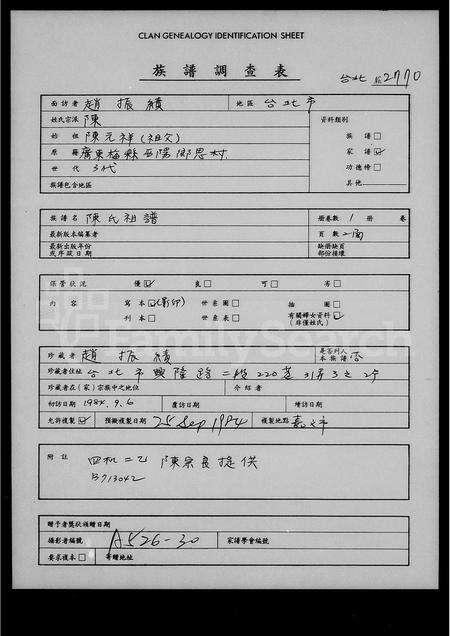 CLAN GENEALOGY IDENTIFICATION SHEET
族譜調查表
台北 2770
面訪者 趙振績 地區 台北市
姓氏宗派 陳 資料類別
始祖 陳元祥(祖父) 族譜□
原籍 廣東梅縣丙陽鄉思村 家譜☑
世代 3代 功德榜□
族譜包含地區 其他
族譜名 陳氏祖譜 冊卷數 1 冊 卷
最新版本編纂者 頁數 2面
最新出版年份 缺冊缺頁
或序跋日期 部份損壞
保管狀況 優☑ 良□ 可□ 劣□
內容 寫本☑(影印) 世系圖□ 插圖□
刊本□ 世系表□ 有關婦女資料☑
(非僅姓氏)
珍藏者 趙振績 是否列入本族譜 否
珍藏者住址 台北市興隆路二段220巷31弄3之2号
珍藏者在(家)宗族中之地位 介紹者
初訪日期 1984.9.6 覆訪日期 增訪日期
允許複製☑ 預擬複製日期 25 Sep 1984 複製地點 嘉義市
附註 四机二乙 陳宗良提供
B713042
贈予者獎狀預贈日期
攝影者編號 A526-30 家譜學會編號
要求複本□ 寄贈地址
FamilySearch